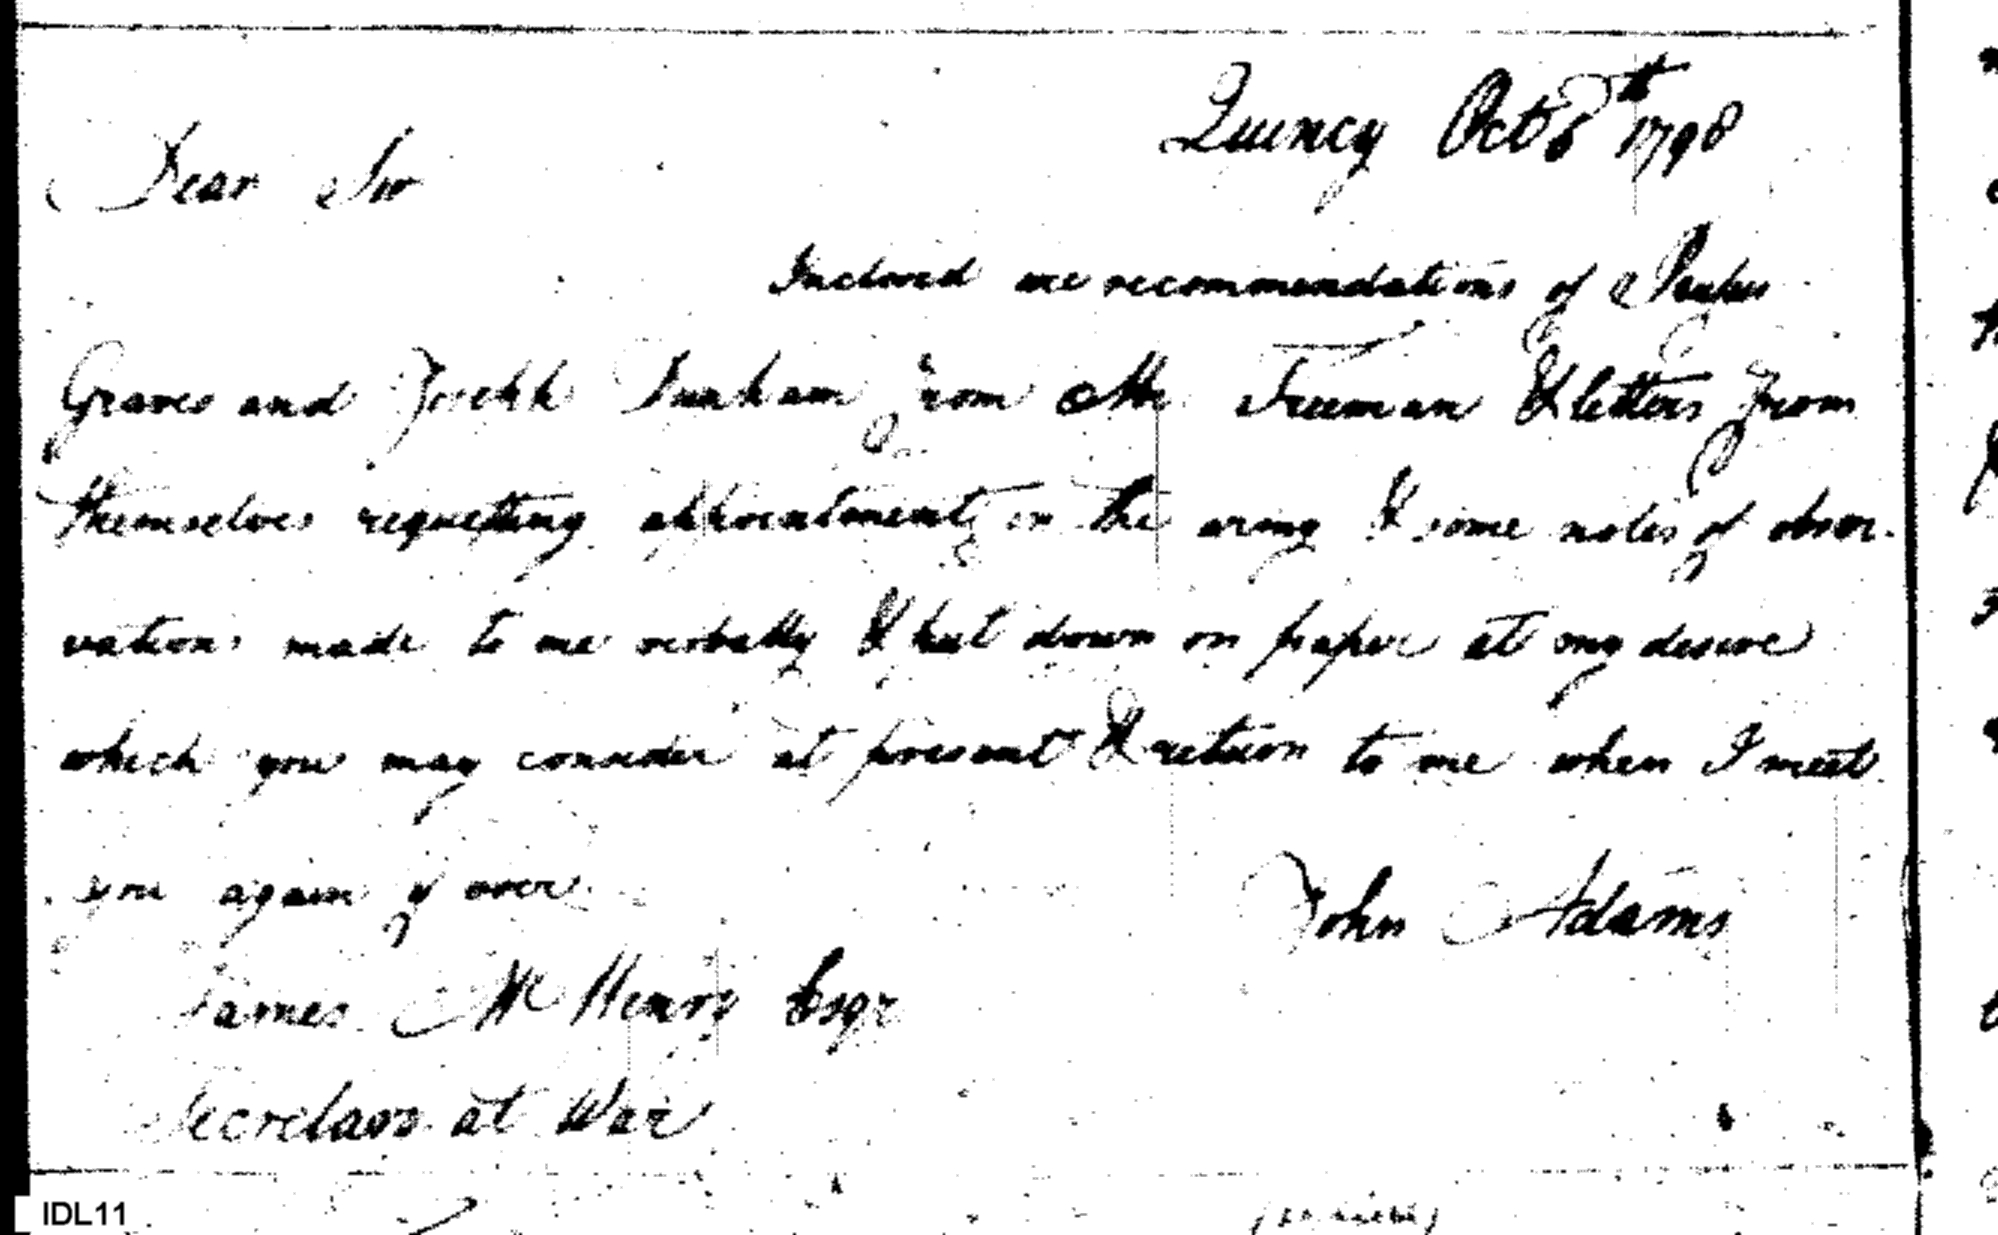 Quincy Oct 6th 1798
Dear Sir
Inclosed are recommendations of
Graves and Joseph Dunham from Mr Freeman & letters from
themselves requesting appointments in the army & some notes of obser-
vations made to me verbally & put down on paper at my desire
which you may consider at present & return to me when I meet
you again if ever
John Adams
James McHenry Esqr
Secretary at War
IDL11